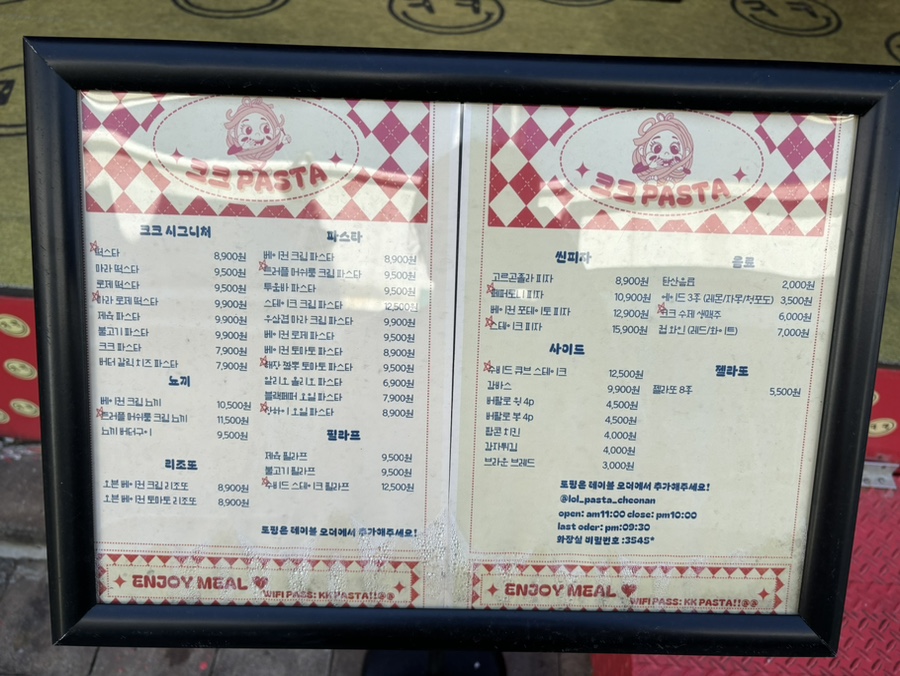 크크 PASTA
크크 시그니처
떡스타 8,900원
마라 떡스타 9,500원
로제 떡스타 9,500원
마라 로제 떡스타 9,900원
제육 파스타 9,900원
불고기 파스타 9,900원
크크 파스타 7,900원
버터 갈릭 치즈 파스타 7,900원
뇨끼
베이컨 크림 뇨끼 10,500원
트러플 머쉬룸 크림 뇨끼 11,500원
뇨끼 버터구이 9,500원
리조또
베이컨 크림 리조또 8,900원
베이컨 토마토 리조또 8,900원
파스타
베이컨 크림 파스타 8,900원
트러플 머쉬룸 크림 파스타 9,500원
투움바 파스타 9,500원
스테이크 크림 파스타 12,500원
우삼겹 마라 크림 파스타 9,900원
베이컨 로제 파스타 9,500원
베이컨 토마토 파스타 8,900원
해장 짬뽕 토마토 파스타 9,500원
알리오 올리오 파스타 6,900원
블랙페퍼 오일 파스타 7,900원
오일 파스타 8,900원
필라프
제육 필라프 9,500원
불고기 필라프 9,500원
수비드 스테이크 필라프 12,500원
토핑은 테이블 오더에서 추가해주세요!
ENJOY MEAL
WIFI PASS: KK PASTA!!@@
크크 PASTA
씬피자
고르곤졸라 피자 8,900원
페퍼로니 피자 10,900원
베이컨 포테이토 피자 12,900원
스테이크 피자 15,900원
사이드
수비드 큐브 스테이크 12,500원
감바스 9,900원
버팔로 윙 4p 4,500원
버팔로 봉 4p 4,500원
팝콘 치킨 4,000원
감자튀김 4,000원
브라운 브레드 3,000원
음료
탄산음료 2,000원
에이드 3종 (레몬/자몽/청포도) 3,500원
크크 수제 생맥주 6,000원
컵 와인 (레드/화이트) 7,000원
젤라또
젤라또 8종 5,500원
토핑은 테이블 오더에서 추가해주세요!
@lol_pasta_cheonan
open: am11:00 close: pm10:00
last oder: pm:09:30
화장실 비밀번호 :3545*
ENJOY MEAL
WIFI PASS: KK PASTA!!@@